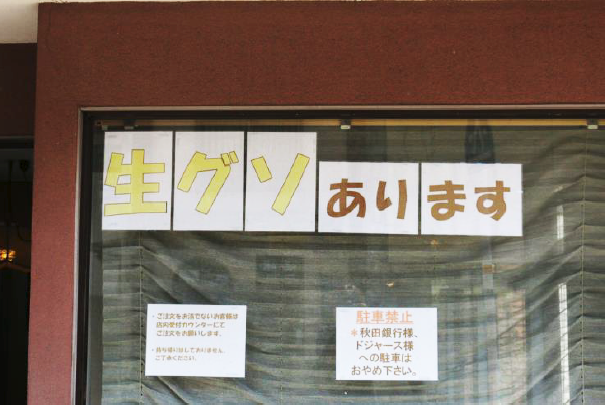 生グソあります
・ご注文をお済でないお客様は
店内受付カウンターにて
ご注文をお願いします。
ご了承ください。
駐車禁止
＊秋田銀行様、
ドジャース様
への駐車は
おやめ下さい。